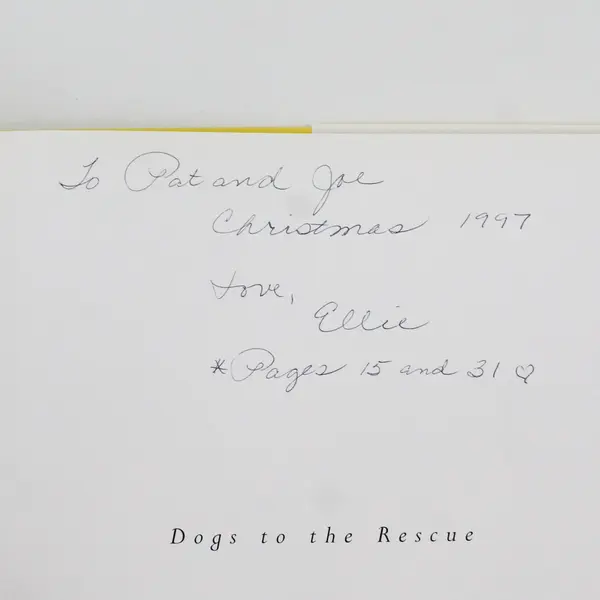 To Pat and Joe
Christmas 1997
Love,
Ellie
*Pages 15 and 31 ♡
Dogs to the Rescue